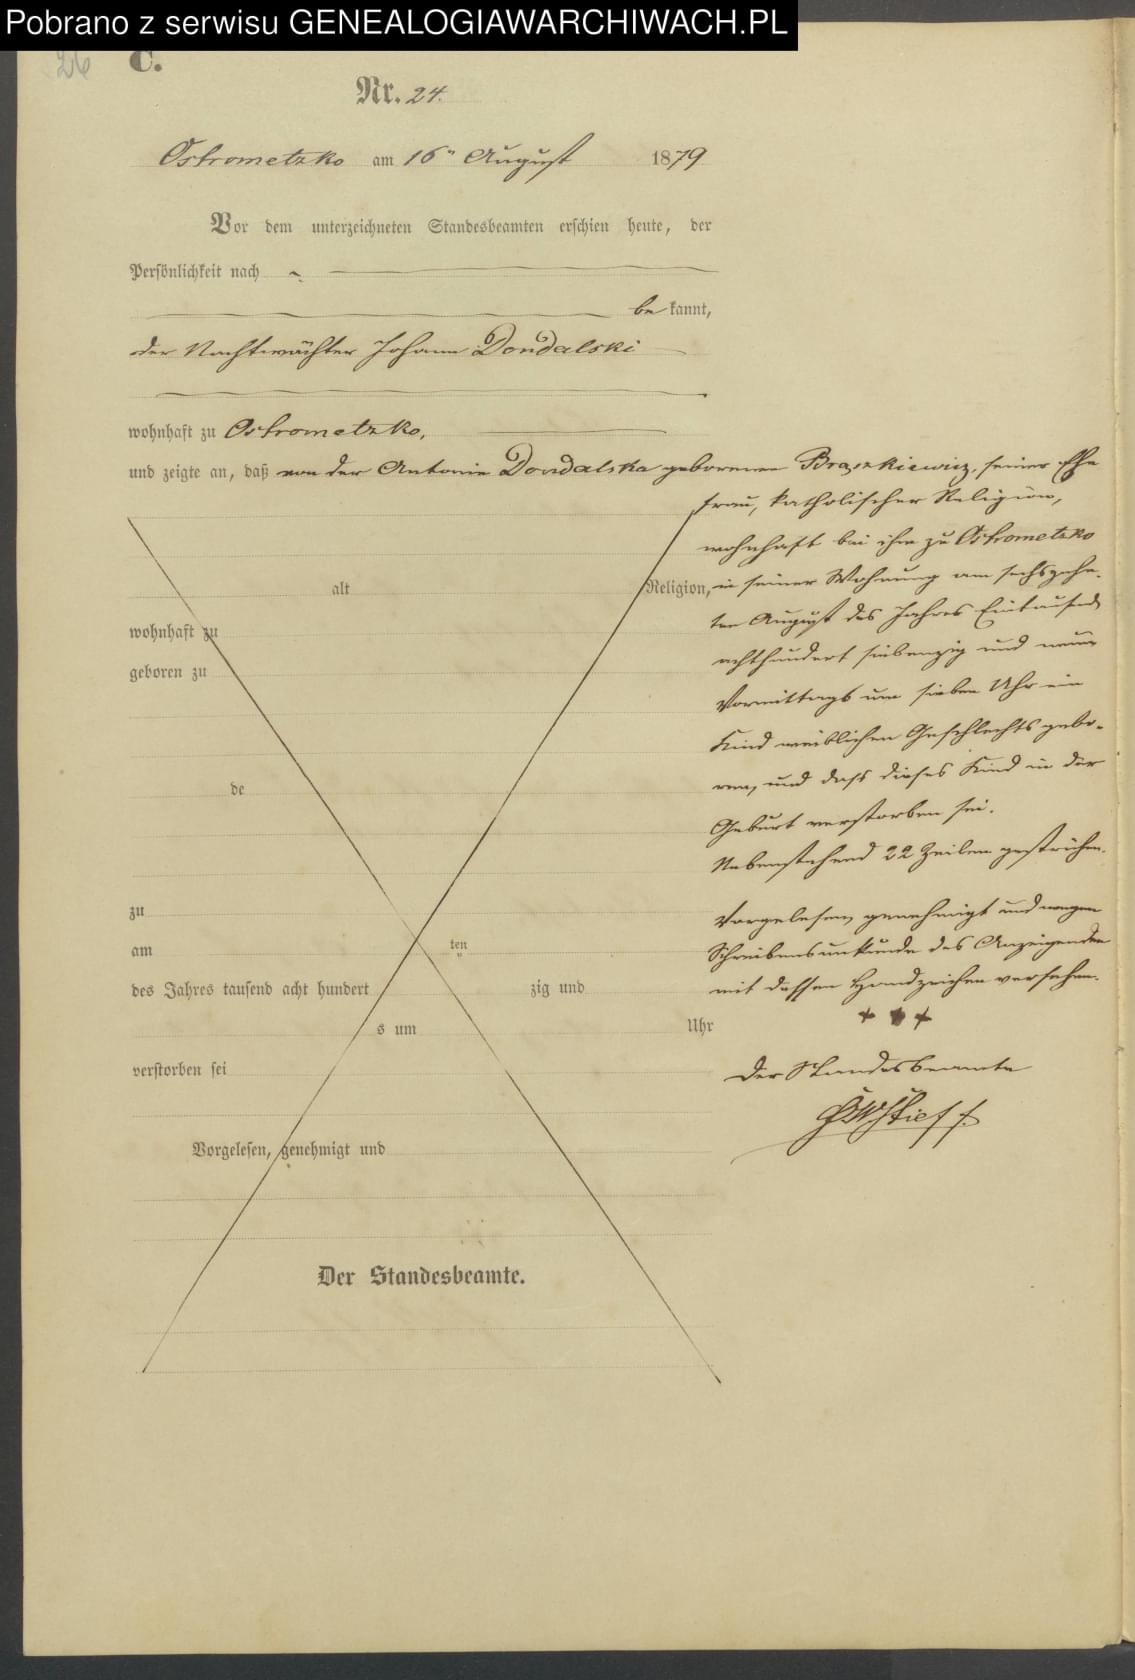 Pobrano z serwisu GENEALOGIAWARCHIWACH.PL
26 C.
Nr. 24.
Ostrometzko am 16ten August 1879
Vor dem unterzeichneten Standesbeamten erschien heute, der
Persönlichkeit nach
be kannt,
der Nachtwächter Johann Dondalski
wohnhaft zu Ostrometzko,
und zeigte an, daß von der Antonie Dondalska geborenen Braszkiewicz, seiner Ehe
frau, katholischer Religion,
wohnhaft bei ihm zu Ostrometzko
alt Religion, in seiner Wohnung am sechszehn-
ten August des Jahres Eintausend
wohnhaft zu
achthundert siebenzig und neun
geboren zu
Vormittags um sieben Uhr ein
Kind weiblichen Geschlechts gebo-
ren, und dass dieses Kind in der
de
Geburt verstorben sei.
Nebenstehend 22 Zeilen gestrichen.
zu
Vorgelesen, genehmigt und wegen
am ten
Schreibensunkunde des Anzeigenden
des Jahres tausend acht hundert zig und
mit dessen Handzeichen versehen.
s um Uhr
+ + +
verstorben sei
Der Standesbeamte
Vorgelesen, genehmigt und
Der Standesbeamte.